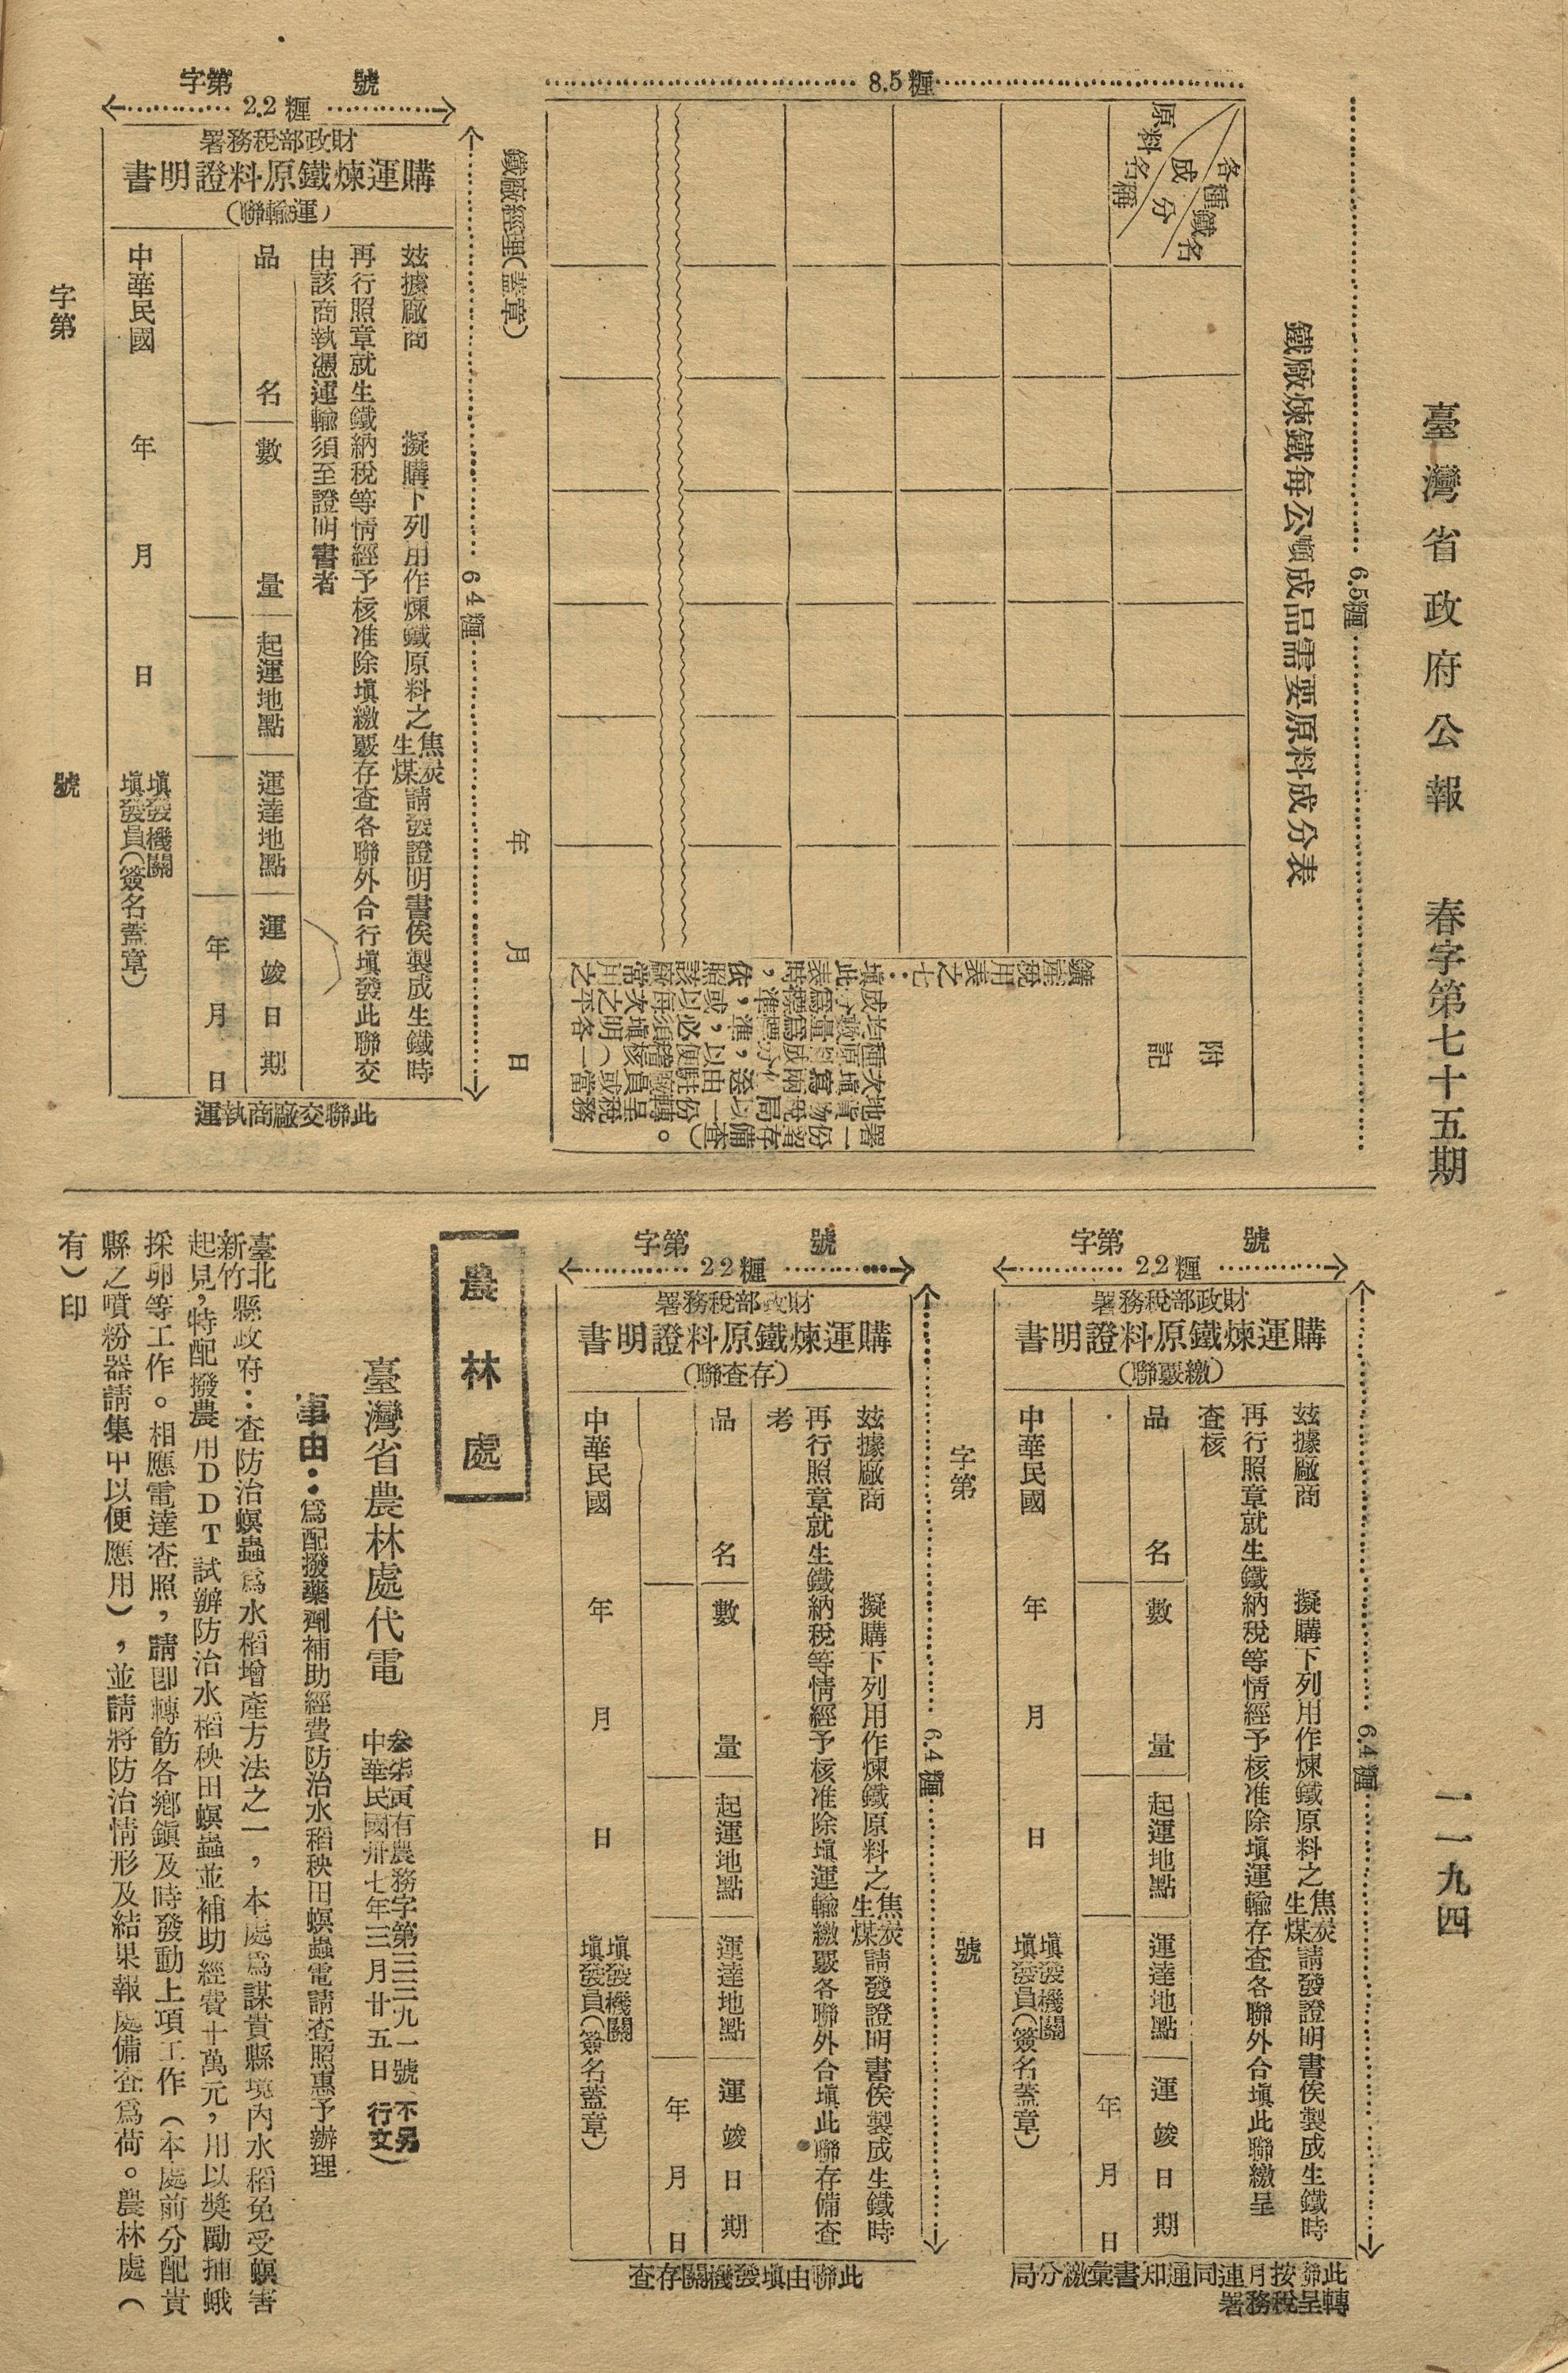 臺灣省政府公報　春字第七十五期　一一九四
6.5糎
鐵廠煉鐵每公噸成品需要原料成分表
8.5糎
各種鐵名
成分
原料名稱
附記
鐵廠經理（蓋章）　年　月　日
字第　號
2.2糎
6.4糎
財政部稅務署
購運煉鐵原料證明書
（運輸聯）
茲據廠商　擬購下列用作煉鐵原料之焦炭生煤請發證明書俟製成生鐵時
再行照章就生鐵納稅等情經予核准除填繳覈存查各聯外合行填發此聯交
由該商執憑運輸須至證明書者
品名　數量　起運地點　運達地點　運竣日期
年　月　日
中華民國　年　月　日　填發機關
填發員（簽名蓋章）
此聯交廠商執運
字第　號
字第　號
2.2糎
6.4糎
財政部稅務署
購運煉鐵原料證明書
（繳覈聯）
茲據廠商　擬購下列用作煉鐵原料之焦炭生煤請發證明書俟製成生鐵時
再行照章就生鐵納稅等情經予核准除填運輸存查各聯外合填此聯繳呈
查核
品名　數量　起運地點　運達地點　運竣日期
年　月　日
中華民國　年　月　日　填發機關
填發員（簽名蓋章）
此聯按月連同通知書彙繳分局
轉呈稅務署
字第　號
字第　號
2.2糎
6.4糎
財政部稅務署
購運煉鐵原料證明書
（存查聯）
茲據廠商　擬購下列用作煉鐵原料之焦炭生煤請發證明書俟製成生鐵時
再行照章就生鐵納稅等情經予核准除填運輸繳覈各聯外合填此聯存備查
考
品名　數量　起運地點　運達地點　運竣日期
年　月　日
中華民國　年　月　日　填發機關
填發員（簽名蓋章）
此聯由填發機關存查
農林處
臺灣省農林處代電　叁柒寅有農務字第三三九一號（不另行文）
中華民國卅七年三月廿五日
事由：爲配撥藥劑補助經費防治水稻秧田螟蟲電請查照惠予辦理
臺北新竹縣政府：查防治螟蟲爲水稻增產方法之一，本處爲謀貴縣境內水稻免受螟害
起見，特配撥農用DDT試辦防治水稻秧田螟蟲並補助經費十萬元，用以獎勵捕蛾
採卵等工作。相應電達查照，請卽轉飭各鄉鎭及時發動上項工作（本處前分配貴
縣之噴粉器請集中以便應用），並請將防治情形及結果報處備查爲荷。農林處（
有）印